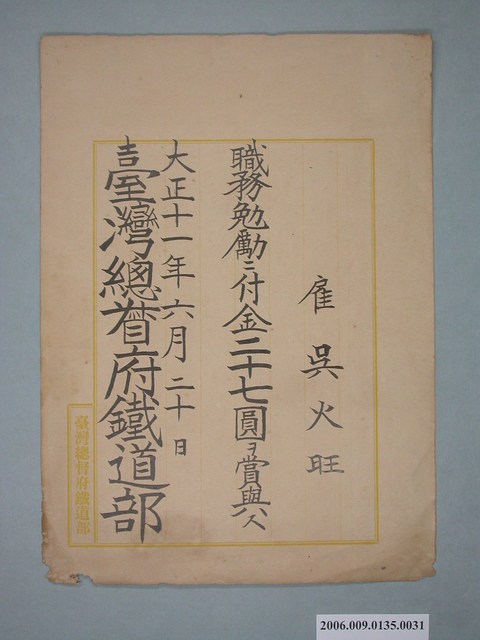 雇 吳火旺
職務勉勵ニ付金二十七圓ヲ賞與ス
大正十一年六月二十日
臺灣總督府鐵道部
臺灣總督府鐵道部
2006.009.0135.0031